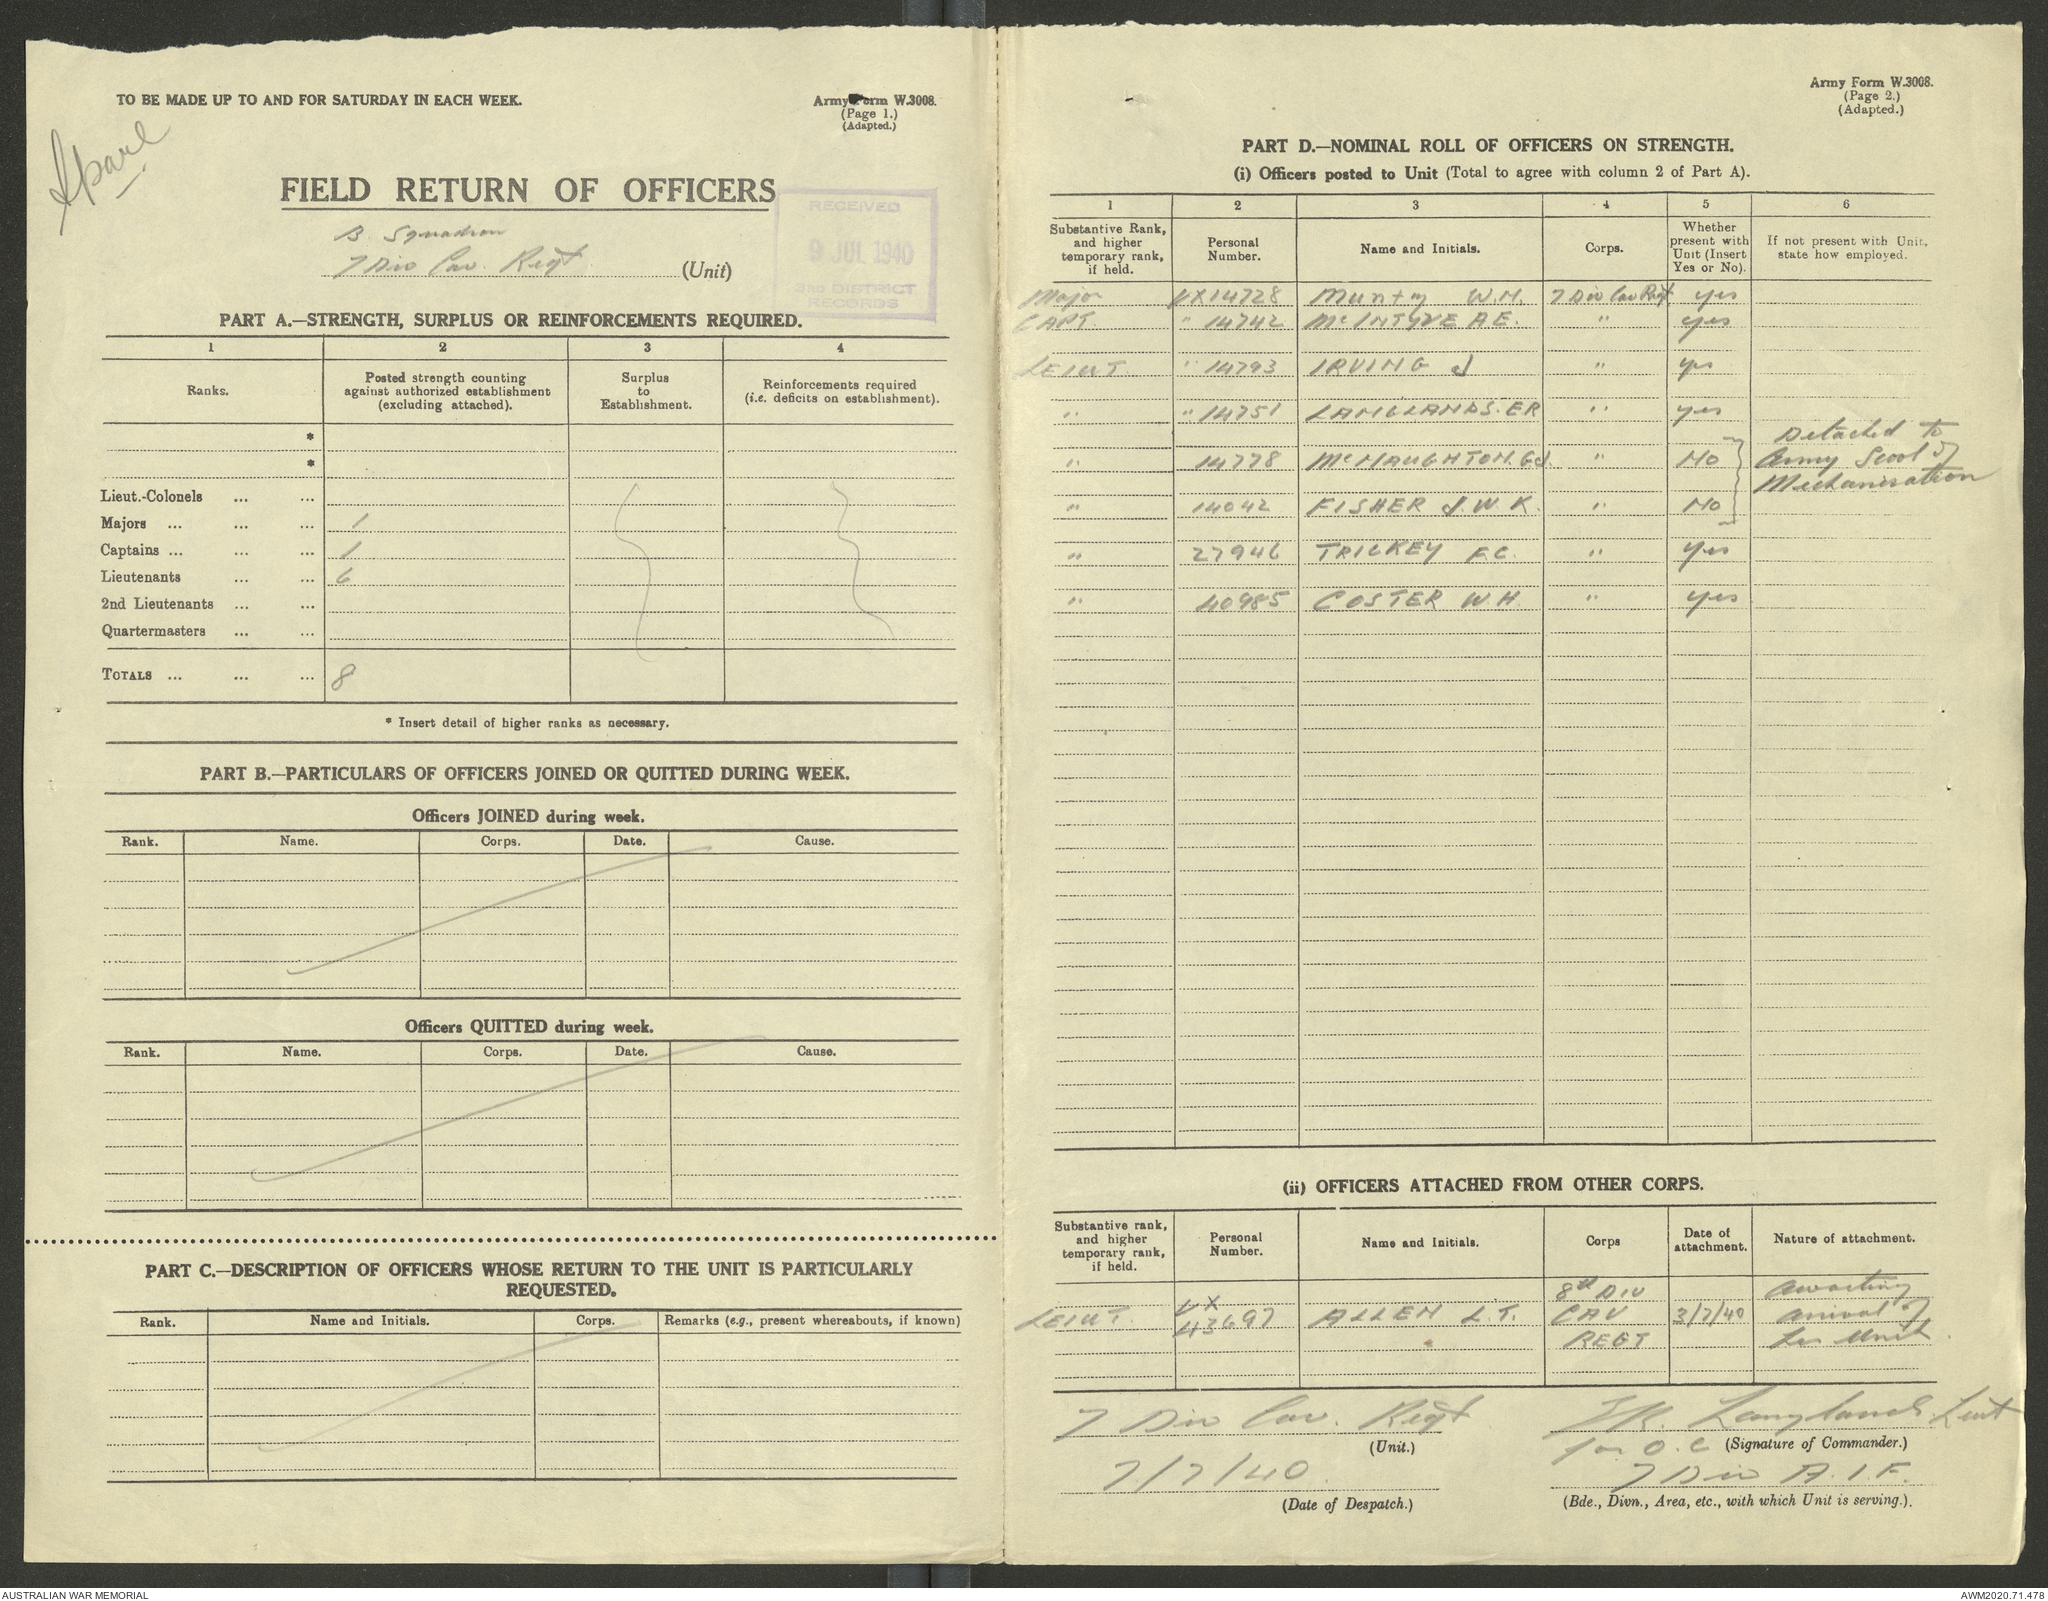 TO BE MADE UP TO AND FOR SATURDAY IN EACH WEEK.
Army Form W.3008.
(Page 1.)
(Adapted.)
Spare
FIELD RETURN OF OFFICERS
B. Squadron
7 Div Cav. Regt (Unit)
RECEIVED
9 JUL 1940
3RD DISTRICT
RECORDS
PART A.—STRENGTH, SURPLUS OR REINFORCEMENTS REQUIRED.
1 2 3 4
Ranks. Posted strength counting against authorized establishment (excluding attached). Surplus to Establishment. Reinforcements required (i.e. deficits on establishment).
*
*
Lieut.-Colonels ... ...
Majors ... ... ... 1
Captains ... ... ... 1
Lieutenants ... ... 6
2nd Lieutenants ... ...
Quartermasters ... ...
TOTALS ... ... ... 8
* Insert detail of higher ranks as necessary.
PART B.—PARTICULARS OF OFFICERS JOINED OR QUITTED DURING WEEK.
Officers JOINED during week.
Rank. Name. Corps. Date. Cause.
Officers QUITTED during week.
Rank. Name. Corps. Date. Cause.
PART C.—DESCRIPTION OF OFFICERS WHOSE RETURN TO THE UNIT IS PARTICULARLY
REQUESTED.
Rank. Name and Initials. Corps. Remarks (e.g., present whereabouts, if known)
Army Form W.3008.
(Page 2.)
(Adapted.)
PART D.—NOMINAL ROLL OF OFFICERS ON STRENGTH.
(i) Officers posted to Unit (Total to agree with column 2 of Part A).
1 2 3 4 5 6
Substantive Rank, and higher temporary rank, if held. Personal Number. Name and Initials. Corps. Whether present with Unit (Insert Yes or No). If not present with Unit, state how employed.
Major VX14728 Munty W.M. 7 Div Cav Regt yes
CAPT. " 14742 McINTYRE A E. " yes
LEIUT " 14793 IRVING J " yes
" " 14751 LANGLANDS. ER " yes
" 14778 McNAUGHTON. G J. " NO Detached to Army Scool of Mechanisation
" 14042 FISHER J. W. K. " NO
" 27946 TRICKEY F.C. " yes
" 40985 COSTER W.H. " yes
(ii) OFFICERS ATTACHED FROM OTHER CORPS.
Substantive rank, and higher temporary rank, if held. Personal Number. Name and Initials. Corps Date of attachment. Nature of attachment.
LEIUT. VX 43697 ALLEN L.T. 8th DIV CAV REGT 3/7/40 Awaiting arrival of his Unit.
7 Div Cav. Regt
(Unit.)
ER. Langlands. Leut
for O.C (Signature of Commander.)
7/7/40.
(Date of Despatch.)
7 Div A.I.F.
(Bde., Divn., Area, etc., with which Unit is serving.).
AUSTRALIAN WAR MEMORIAL
AWM2020.71.478